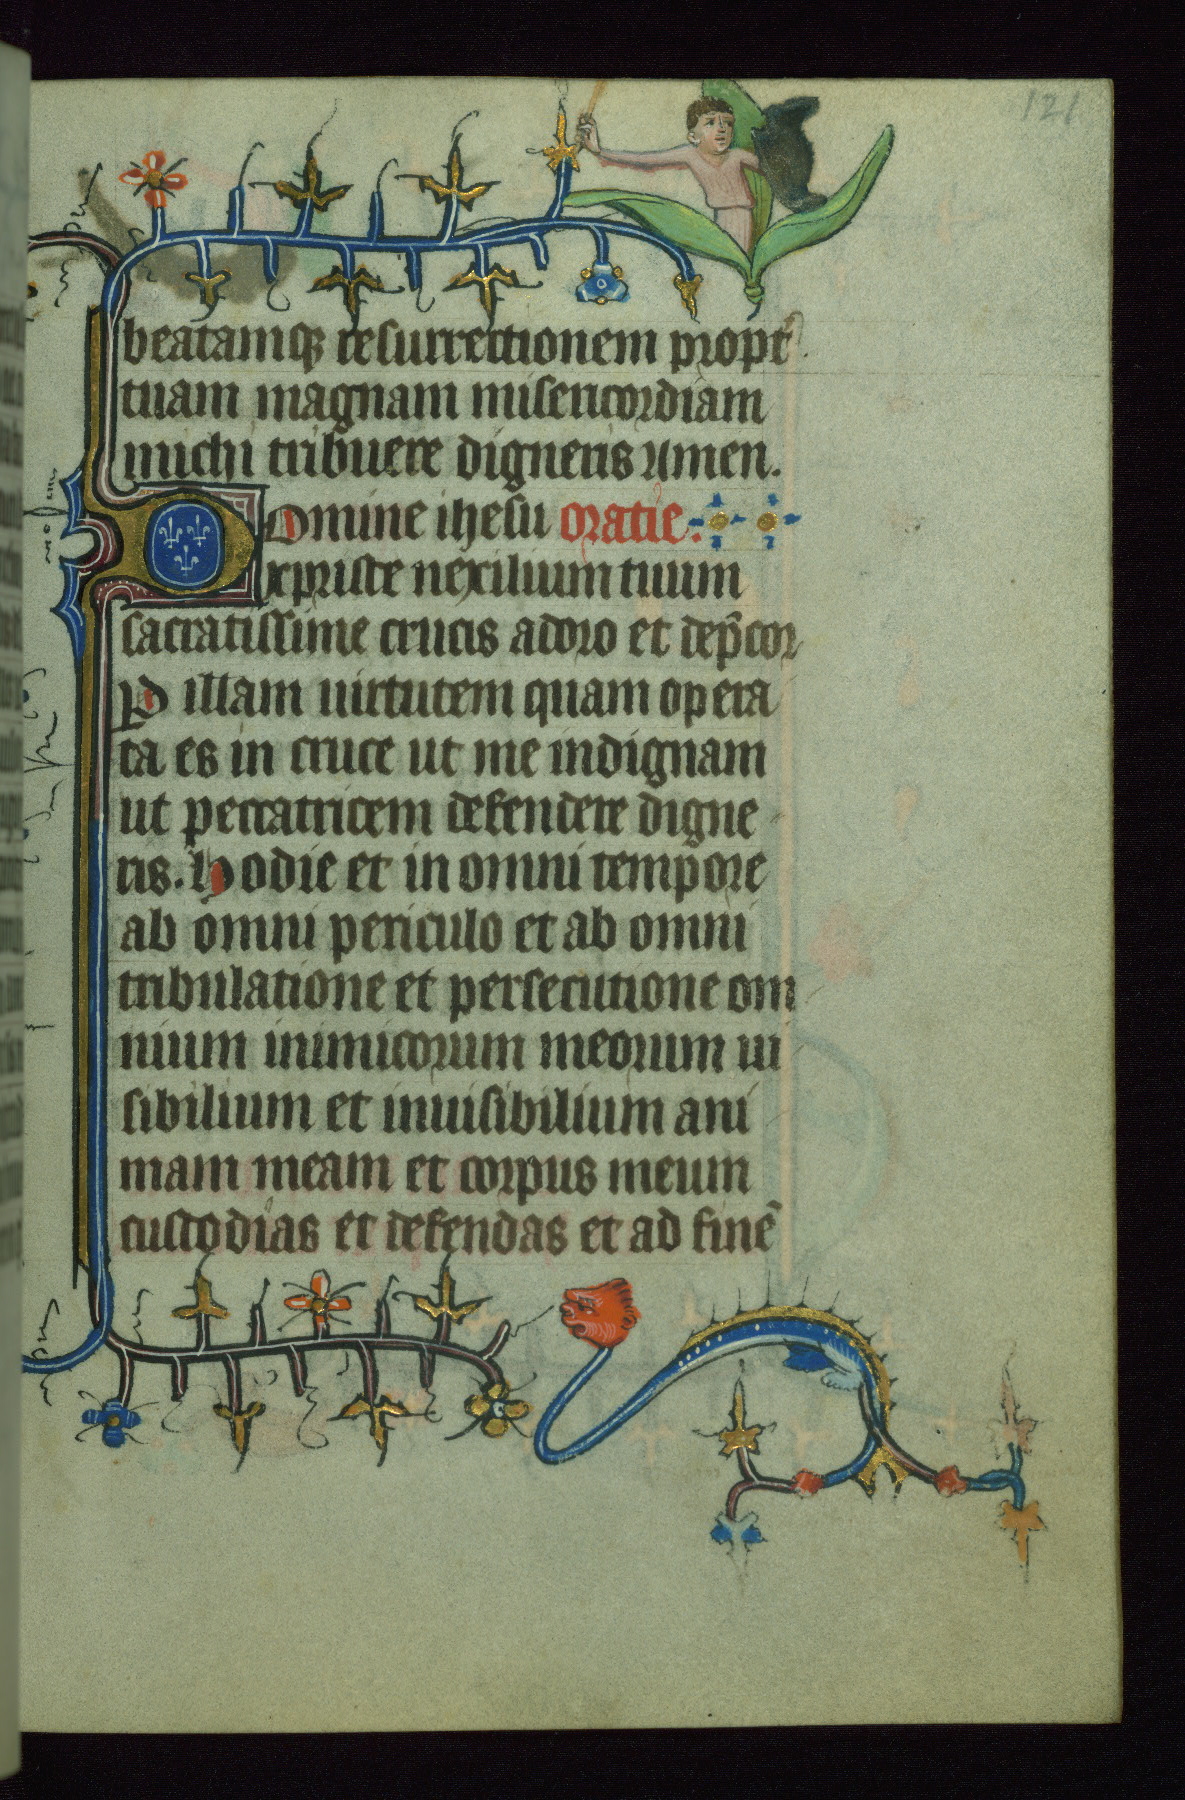 121
beatamqꝫ resurrectionem propt᷑
tuam magnam misericordiam
michi tribuere digneris Amen.
Domine ihesu oratie.
xpriste nexilium tuum
sacratissime crucis adoro et dep̄cor
P illam uirtutem quam opera
ta es in cruce ut me indignam
ut peccatricem defendere digne
ris. Hodie et in omni tempore
ab omni periculo et ab omni
tribulatione et persecutione om
nium inimicorum meorum ui
sibilium et inuisibilium ani
mam meam et corpus meum
custodias et defendas et ad finē